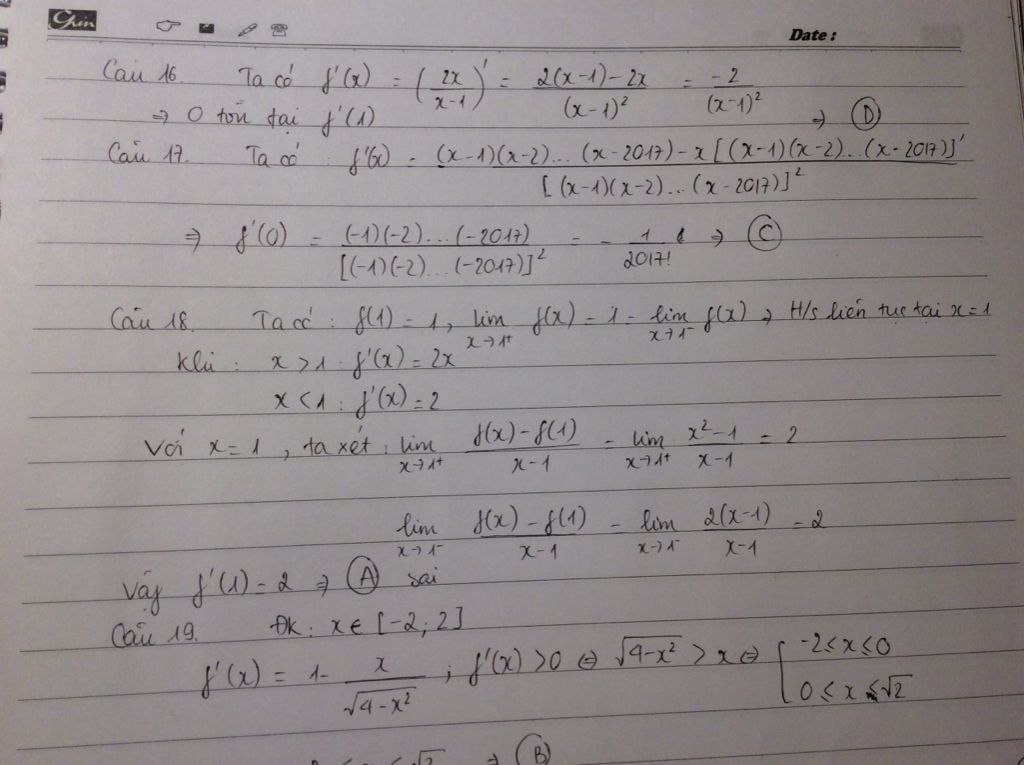 Chin
Date :
Câu 16. Ta có f'(x) = (2x/(x-1))' = (2(x-1)-2x)/(x-1)² = -2/(x-1)²
⇒ 0 tồn tại f'(1) ⇒ (D)
Câu 17. Ta có : f'(x) = ((x-1)(x-2)...(x-2017) - x[(x-1)(x-2)...(x-2017)]')/[(x-1)(x-2)...(x-2017)]²
⇒ f'(0) = ((-1)(-2)...(-2017))/[(-1)(-2)...(-2017)]² = - 1/2017! ⇒ (C)
Câu 18. Ta có : f(1) = 1, lim x→1⁺ f(x) = 1 = lim x→1⁻ f(x) ⇒ H/s liên tục tại x = 1
Khi : x > 1 : f'(x) = 2x
x < 1 : f'(x) = 2
Với x = 1, ta xét : lim x→1⁺ (f(x) - f(1))/(x-1) = lim x→1⁺ (x²-1)/(x-1) = 2
lim x→1⁻ (f(x) - f(1))/(x-1) = lim x→1⁻ 2(x-1)/(x-1) = 2
Vậy f'(1) = 2 ⇒ (A) sai
Câu 19. Đk : x ∈ [-2; 2]
f'(x) = 1 - x/√(4-x²) ; f'(x) > 0 ⇔ √(4-x²) > x ⇔ { -2 ≤ x ≤ 0
0 ≤ x ≤ √2
√2 ⇒ (B)